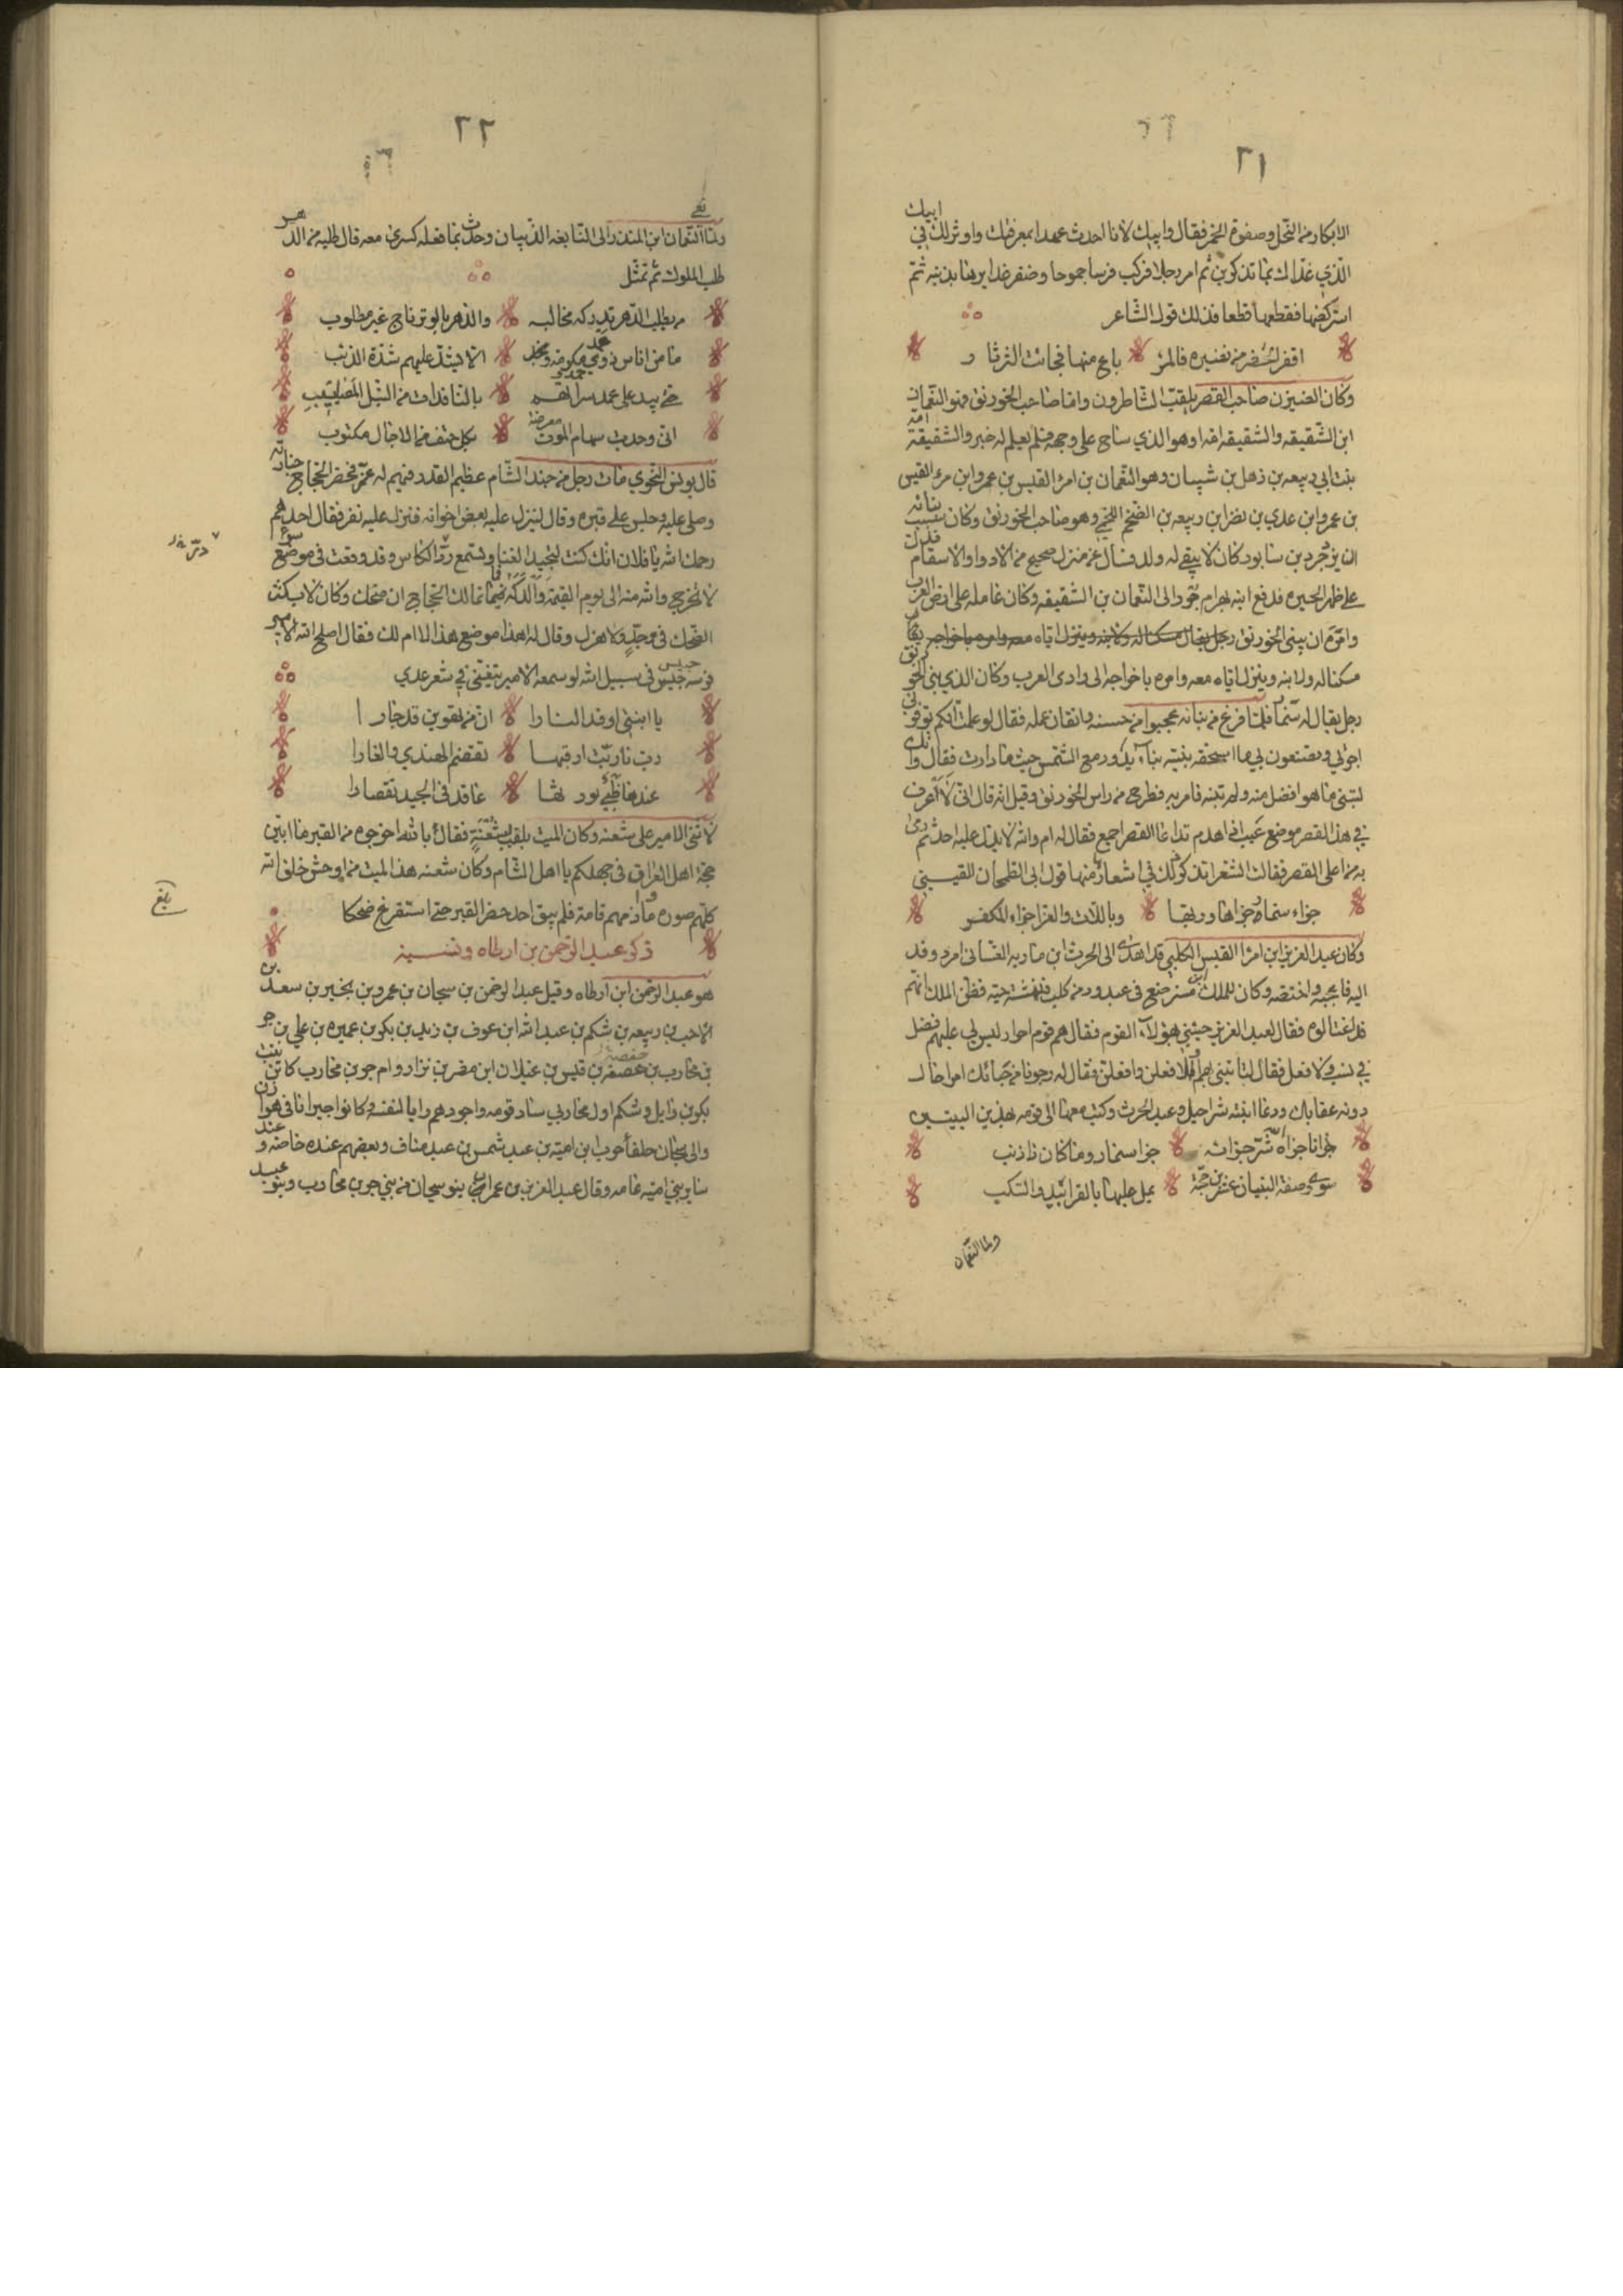 ٢١
الابكار من النحل وصفوة الخمر فقال وابيك لانا احدث عهدا بمعرفتك واوثر لك في
ابيك
الذي غذاك بما تذكرين ثم امر رجلا فركب فرسا جموحا وضفر غدايرها بذنبه ثم
استركضها فقطعها قطعا فذلك قول الشاعر
اقفر الحضر من نضيره فالمر باع منها فجانب الثرثار
وكان الضيزن صاحب القصر يلقب الشاطرون واما صاحب الخورنق فهو النعمان
ابن الشقيقه والشقيقه امه وهو الذي ساح على وجهه فلم يعلم له خبر والشقيقة
بنت ابي ربيعه بن ذهل بن شيبان وهو النعمان بن امرئ القيس بن عمرو ابن مرء القيس
بن عمرو ابن عدي بن نضر ابن ربيعه بن الضخم اللخمي وهو صاحب الخورنق وكان سبب
بنائه
ان يزدجرد بن سابور كان لا يبقي له ولد فسال عن منزل صحيح من الادوا والاسقام
على ظهر الحيره فدفع ابنه بهرام جور الى النعمان بن الشقيقه وكان عامله على ارض العرب
وامره ان يبني الخورنق
مسكنا له ولابنه وينزل اياه معه وامره باخراجه الى وادى العرب وكان الذي بنى الخو
رنق
رجل يقال له سنمار فلما فرغ من بنائه عجبوا من حسنه واتقان عمله فقال لو علمت انكم توفوني
اجرتي وتصنعون بي ما استحقه بنيته بناء يدور مع الشمس حيث ما دارت فقال وانك
لتبني ما هو افضل منه ولم تبنه فامر به فطرح من راس الخورنق وقيل انه قال اني لا اعرف
في هذا القصر موضع عيب اذا هدم تداعا القصر اجمع فقال له ام والله لا يدل عليه احد ثم
رمى
به من اعلى القصر فقالت الشعرا تذكر ذلك في اشعار منها قول ابي الطمحان القيسيني
جزاء سنمار جزاها وربها وباللات والعزا جزاء المكفر
وكان عبد العزيز ابن امرا القيس الكلبي قد اهدى الى الحرث ابن ماريه الغساني امرد وفد
اليه فاعجبه واختصه وكان للملك ابن مسترضع في عبدود من كلب فنهشته حيه فظن الملك انهم
قد اغتالوه فقال لعبد العزيز جيئني بهؤلاء القوم فقال هم قوم احرار ليس لي عليهم فضل
في نسب ولا فعل فقال لتاتيني بهم او لافعلن وافعلن فقال له رجونا من حبائك امرا حال
دونه عقابك ودعا ابنيه شراحيل وعبد الحرث وكتب معهما الى قومه بهذين البيتين
جزانا جزاه الله شر جزائه جزا سنمار وما كان ذا ذنب
سوى رصفه البنيان عشرين حجة يعل عليها بالقراميد والسكب
ولما النعمان
٢٢
نعي
ولما النعمان ابن المنذر الى النابغه الذبيان وحدث بما فعله كسرى معه قال طلبه من الدهر
طلب الملوك ثم تمثل
من يطلب الدهر تدركه مخالبه والدهر بالوتر ناج غير مطلوب
ما من اناس ذوي مكرمه ومجد الا يشد عليهم شدة الذئب
حتى يبيد على عمد سراتهم بالنافذات من النبل المصاييب
اني وجدت سهام الموت معرضة بكل حتف من الاجال مكتوب
قال يونس النحوي مات رجل من جند الشام عظيم القدر فيهم له عز فحضر الحجاج جنازته
وصلى عليه وجلس على قبره وقال لينزل عليه بعض اخوانه فنزل عليه نفر فقال احدهم
رحمك الله يا فلان انك كنت لتجيد الغنا وتستمع رد الكاس وقد وقعت في موضع سوء
لا تخرج والله منه الى يوم القيمة والدكه فما تمالك الحجاج ان ضحك وكان لا يكثر
الضحك في جد ولا هزل وقال له اهذا موضع هذا لا ام لك فقال اصلح الله الامير
فرسه حبيس في سبيل الله لو سمعه الامير يتغنى في شعر عدي
يا ابنتي اوقد النارا ان من تهوين قد حارا
رب نار بت ارقبها تقضم الهندي والغارا
عندها ظبي يورثها عاقد في الجيد تقصارا
لانتن الامير على شعنه وكان الميت يلقب بشعنة فقال بالله اخرجوه من القبر ما ابين
حجة اهل العراق في جهلكم يا اهل الشام وكان شعنه هذا الميت من اوحش خلق الله
كلهم صوره واذمهم قامة فلم يبق احد حضر القبر حتى استفرغ ضحكا
ذكر عبد الرحمن بن ارطاه ونسبه
هو عبد الرحمن ابن ارطاه وقيل عبد الرحمن بن سيحان بن عمرو بن نجير بن سعد بن
الاحب بن ربيعه بن شكم بن عبد الله ابن عوف بن زيد بن بكر بن عميره بن علي بن جسر
بن محارب بن خصفه بن قيس بن عيلان ابن مضر بن نزار وام جر بن محارب كاتن بنت
بكر بن وايل وشكم اول محاربي ساد قومه واجودهم رايا لنفسه وكانوا جيرانا في هوازن
والى سيحان حلفا حرب ابن اميه بن عبد شمس بن عبد مناف وبعضهم عنده خاصه وعند
ساير بني اميه عامه وقال عبد العزيز بن عمران بنو سيحان من بني جر بن محارب وبنو عبد
بلغ